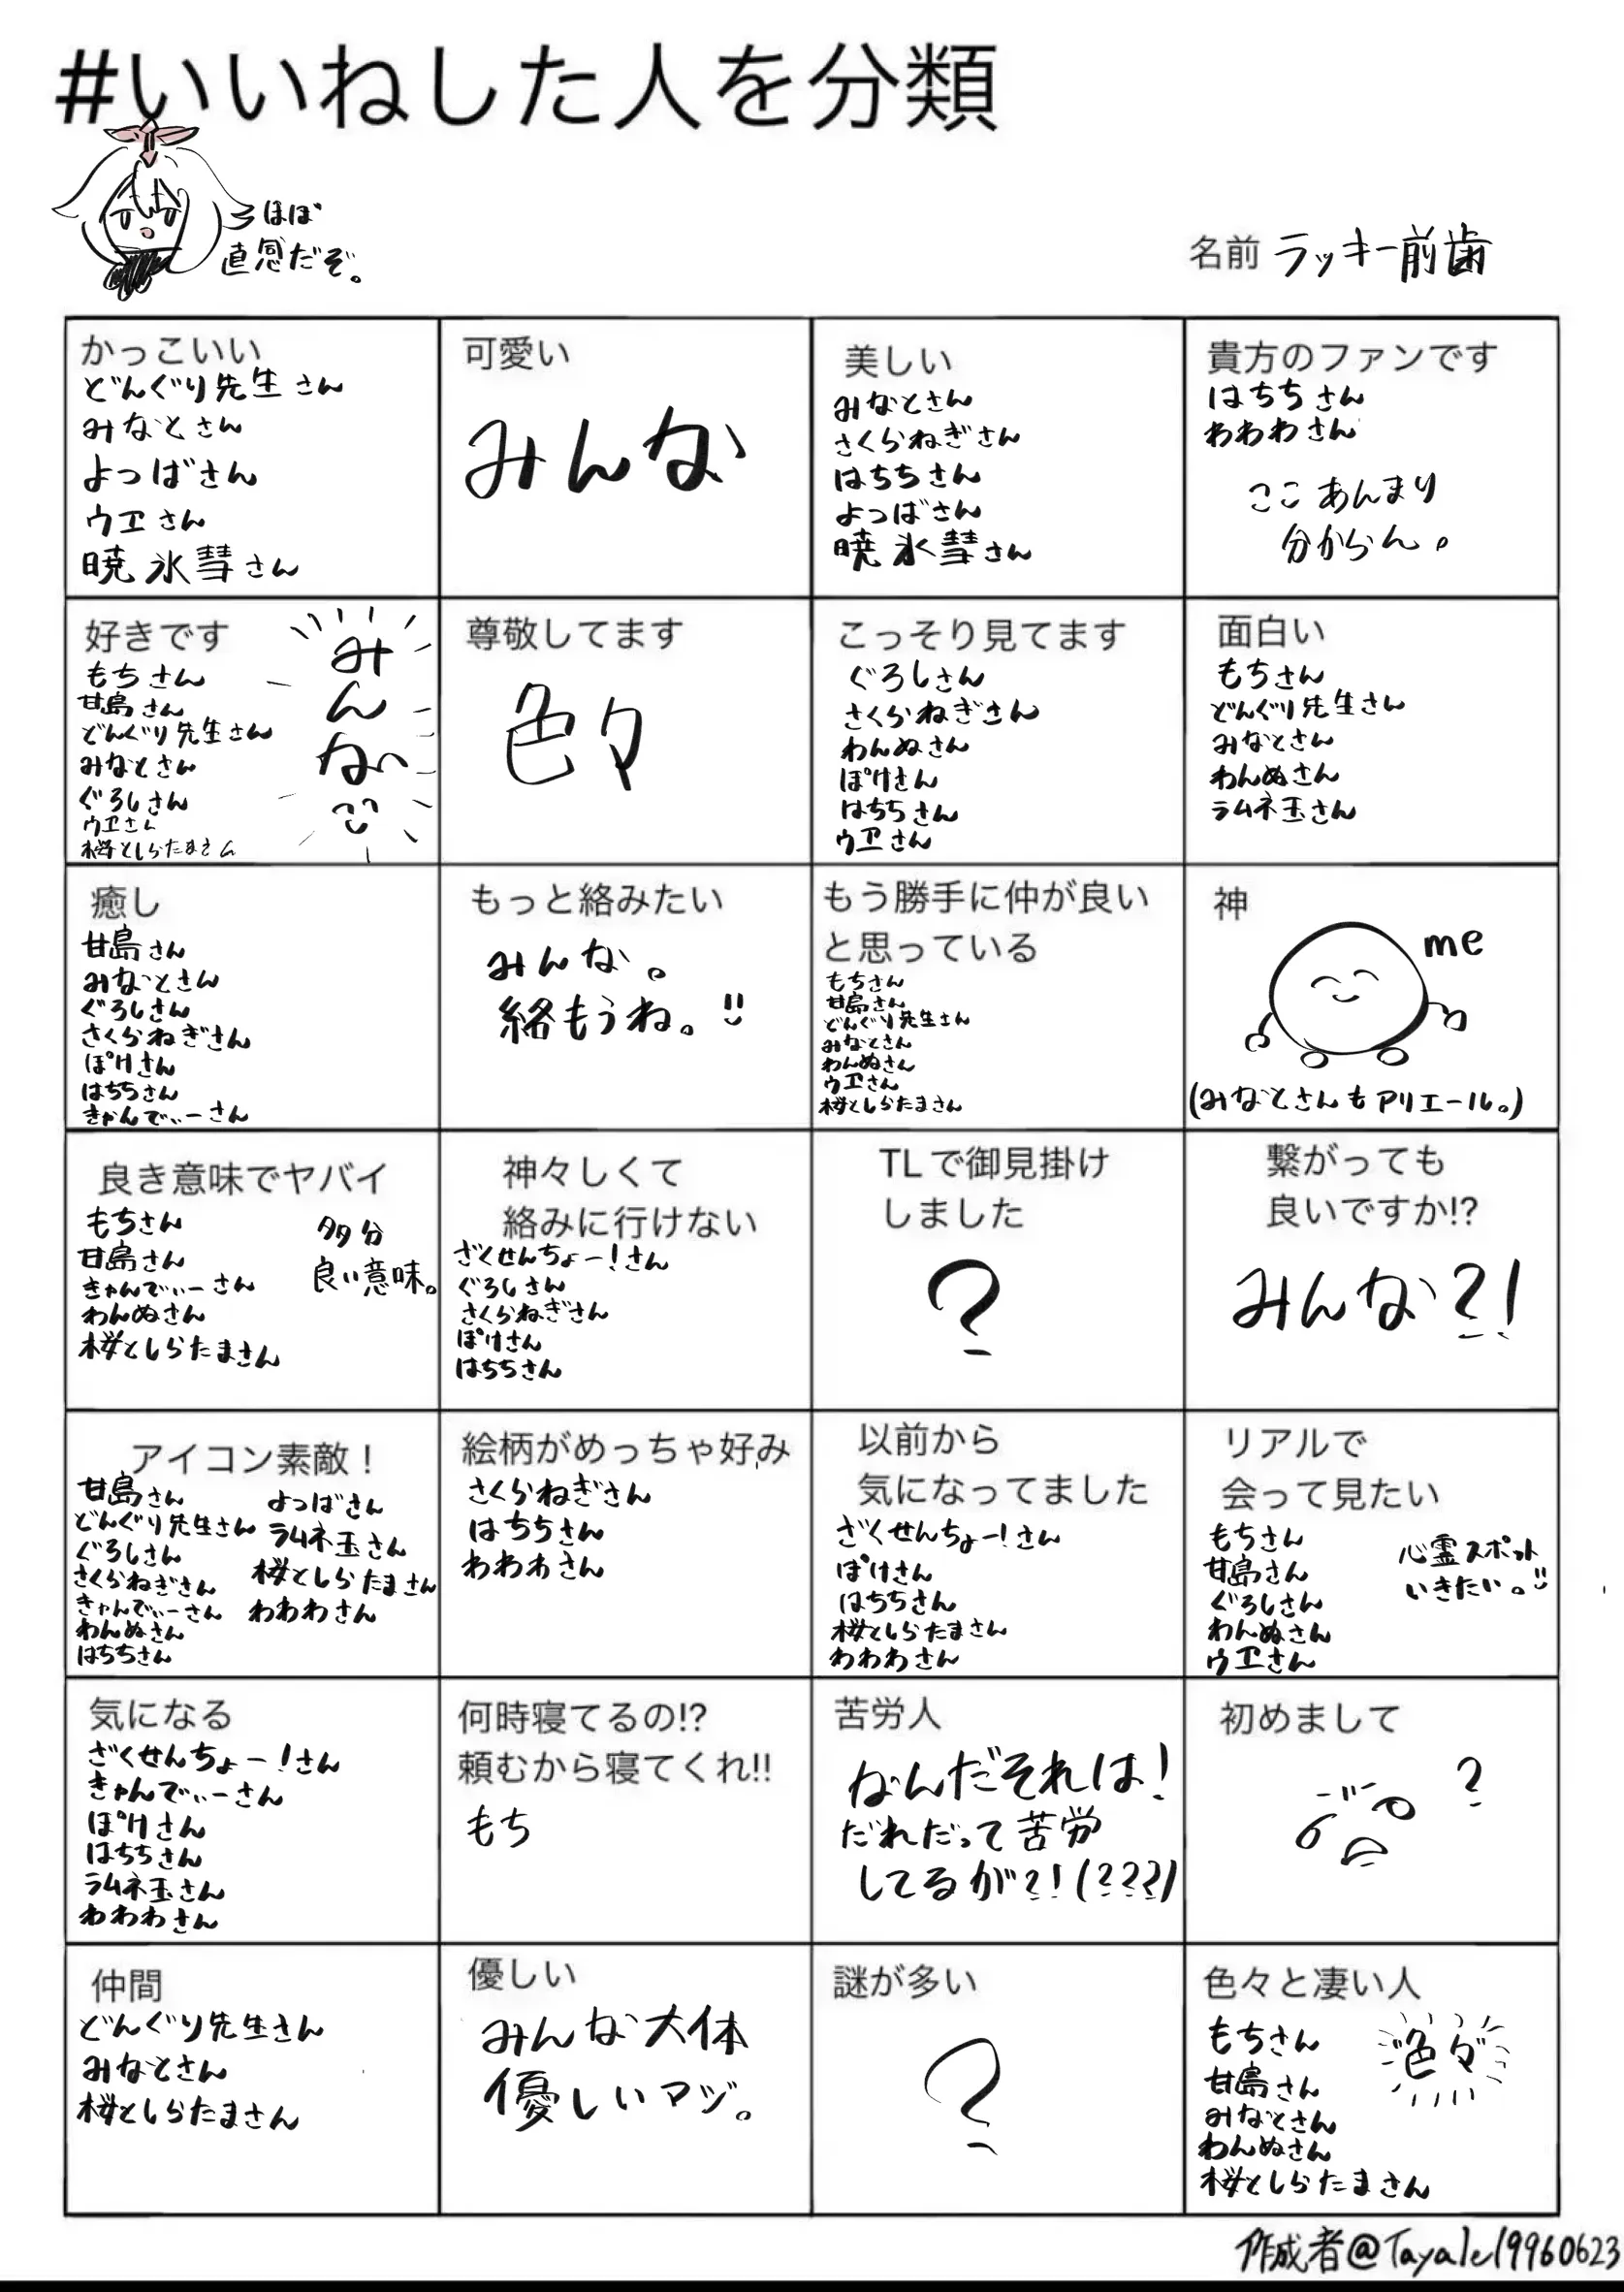 #いいねした人を分類
ほぼ
直感だぞ。
名前 ラッキー前歯
かっこいい
どんぐり先生さん
みなとさん
よつばさん
ウエさん
暁 氷彗さん
可愛い
みんな
美しい
みなとさん
さくらねぎさん
はちちさん
よつばさん
暁 氷彗さん
貴方のファンです
はちちさん
わわわさん
ここ あんまり
分からん。
好きです
もちさん
甘島さん
どんぐり先生さん
みなとさん
ぐろしさん
ウエさん
桜としらたまさん
みんな
尊敬してます
色々
こっそり見てます
ぐろしさん
さくらねぎさん
わんぬさん
ぽけさん
はちちさん
ウエさん
面白い
もちさん
どんぐり先生さん
みなとさん
わんぬさん
ラムネ玉さん
癒し
甘島さん
みなとさん
ぐろしさん
さくらねぎさん
ぽけさん
はちちさん
きゃんでぃーさん
もっと絡みたい
みんな。
絡もうね。
もう勝手に仲が良い
と思っている
もちさん
甘島さん
どんぐり先生さん
みなとさん
わんぬさん
ウエさん
桜としらたまさん
神
me
(みなとさんもアリエール。)
良き意味でヤバイ
もちさん
甘島さん
きゃんでぃーさん
わんぬさん
桜としらたまさん
多分
良い意味。
神々しくて
絡みに行けない
ざくせんちょー!さん
ぐろしさん
さくらねぎさん
ぽけさん
はちちさん
TLで御見掛け
しました
?
繋がっても
良いですか!?
みんな?!
アイコン素敵!
甘島さん
どんぐり先生さん
ぐろしさん
さくらねぎさん
きゃんでぃーさん
わんぬさん
はちちさん
よつばさん
ラムネ玉さん
桜としらたまさん
わわわさん
絵柄がめっちゃ好み
さくらねぎさん
はちちさん
わわわさん
以前から
気になってました
ざくせんちょー!さん
ぽけさん
はちちさん
桜としらたまさん
わわわさん
リアルで
会って見たい
もちさん
甘島さん
ぐろしさん
わんぬさん
ウエさん
心霊スポット
いきたい。
気になる
ざくせんちょー!さん
きゃんでぃーさん
ぽけさん
はちちさん
ラムネ玉さん
わわわさん
何時寝てるの!?
頼むから寝てくれ!!
もち
苦労人
なんだそれは!
だれだって苦労
してるが?!(???)
初めまして
?
仲間
どんぐり先生さん
みなとさん
桜としらたまさん
優しい
みんな大体
優しいマヅ。
謎が多い
?
色々と凄い人
もちさん
甘島さん
みなとさん
わんぬさん
桜としらたまさん
色々
作成者@Tayale19960623